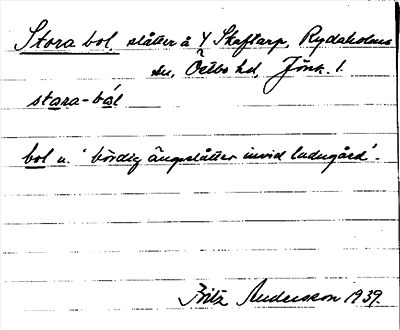 Stora bol, slåtter å Y Skaftarp, Rydaholms
sn, Östbo hd, Jönk. l.
stara-bål
bol n. 'bördig ängsslåtter invid ladugård'.
Britz Andersson 1939.